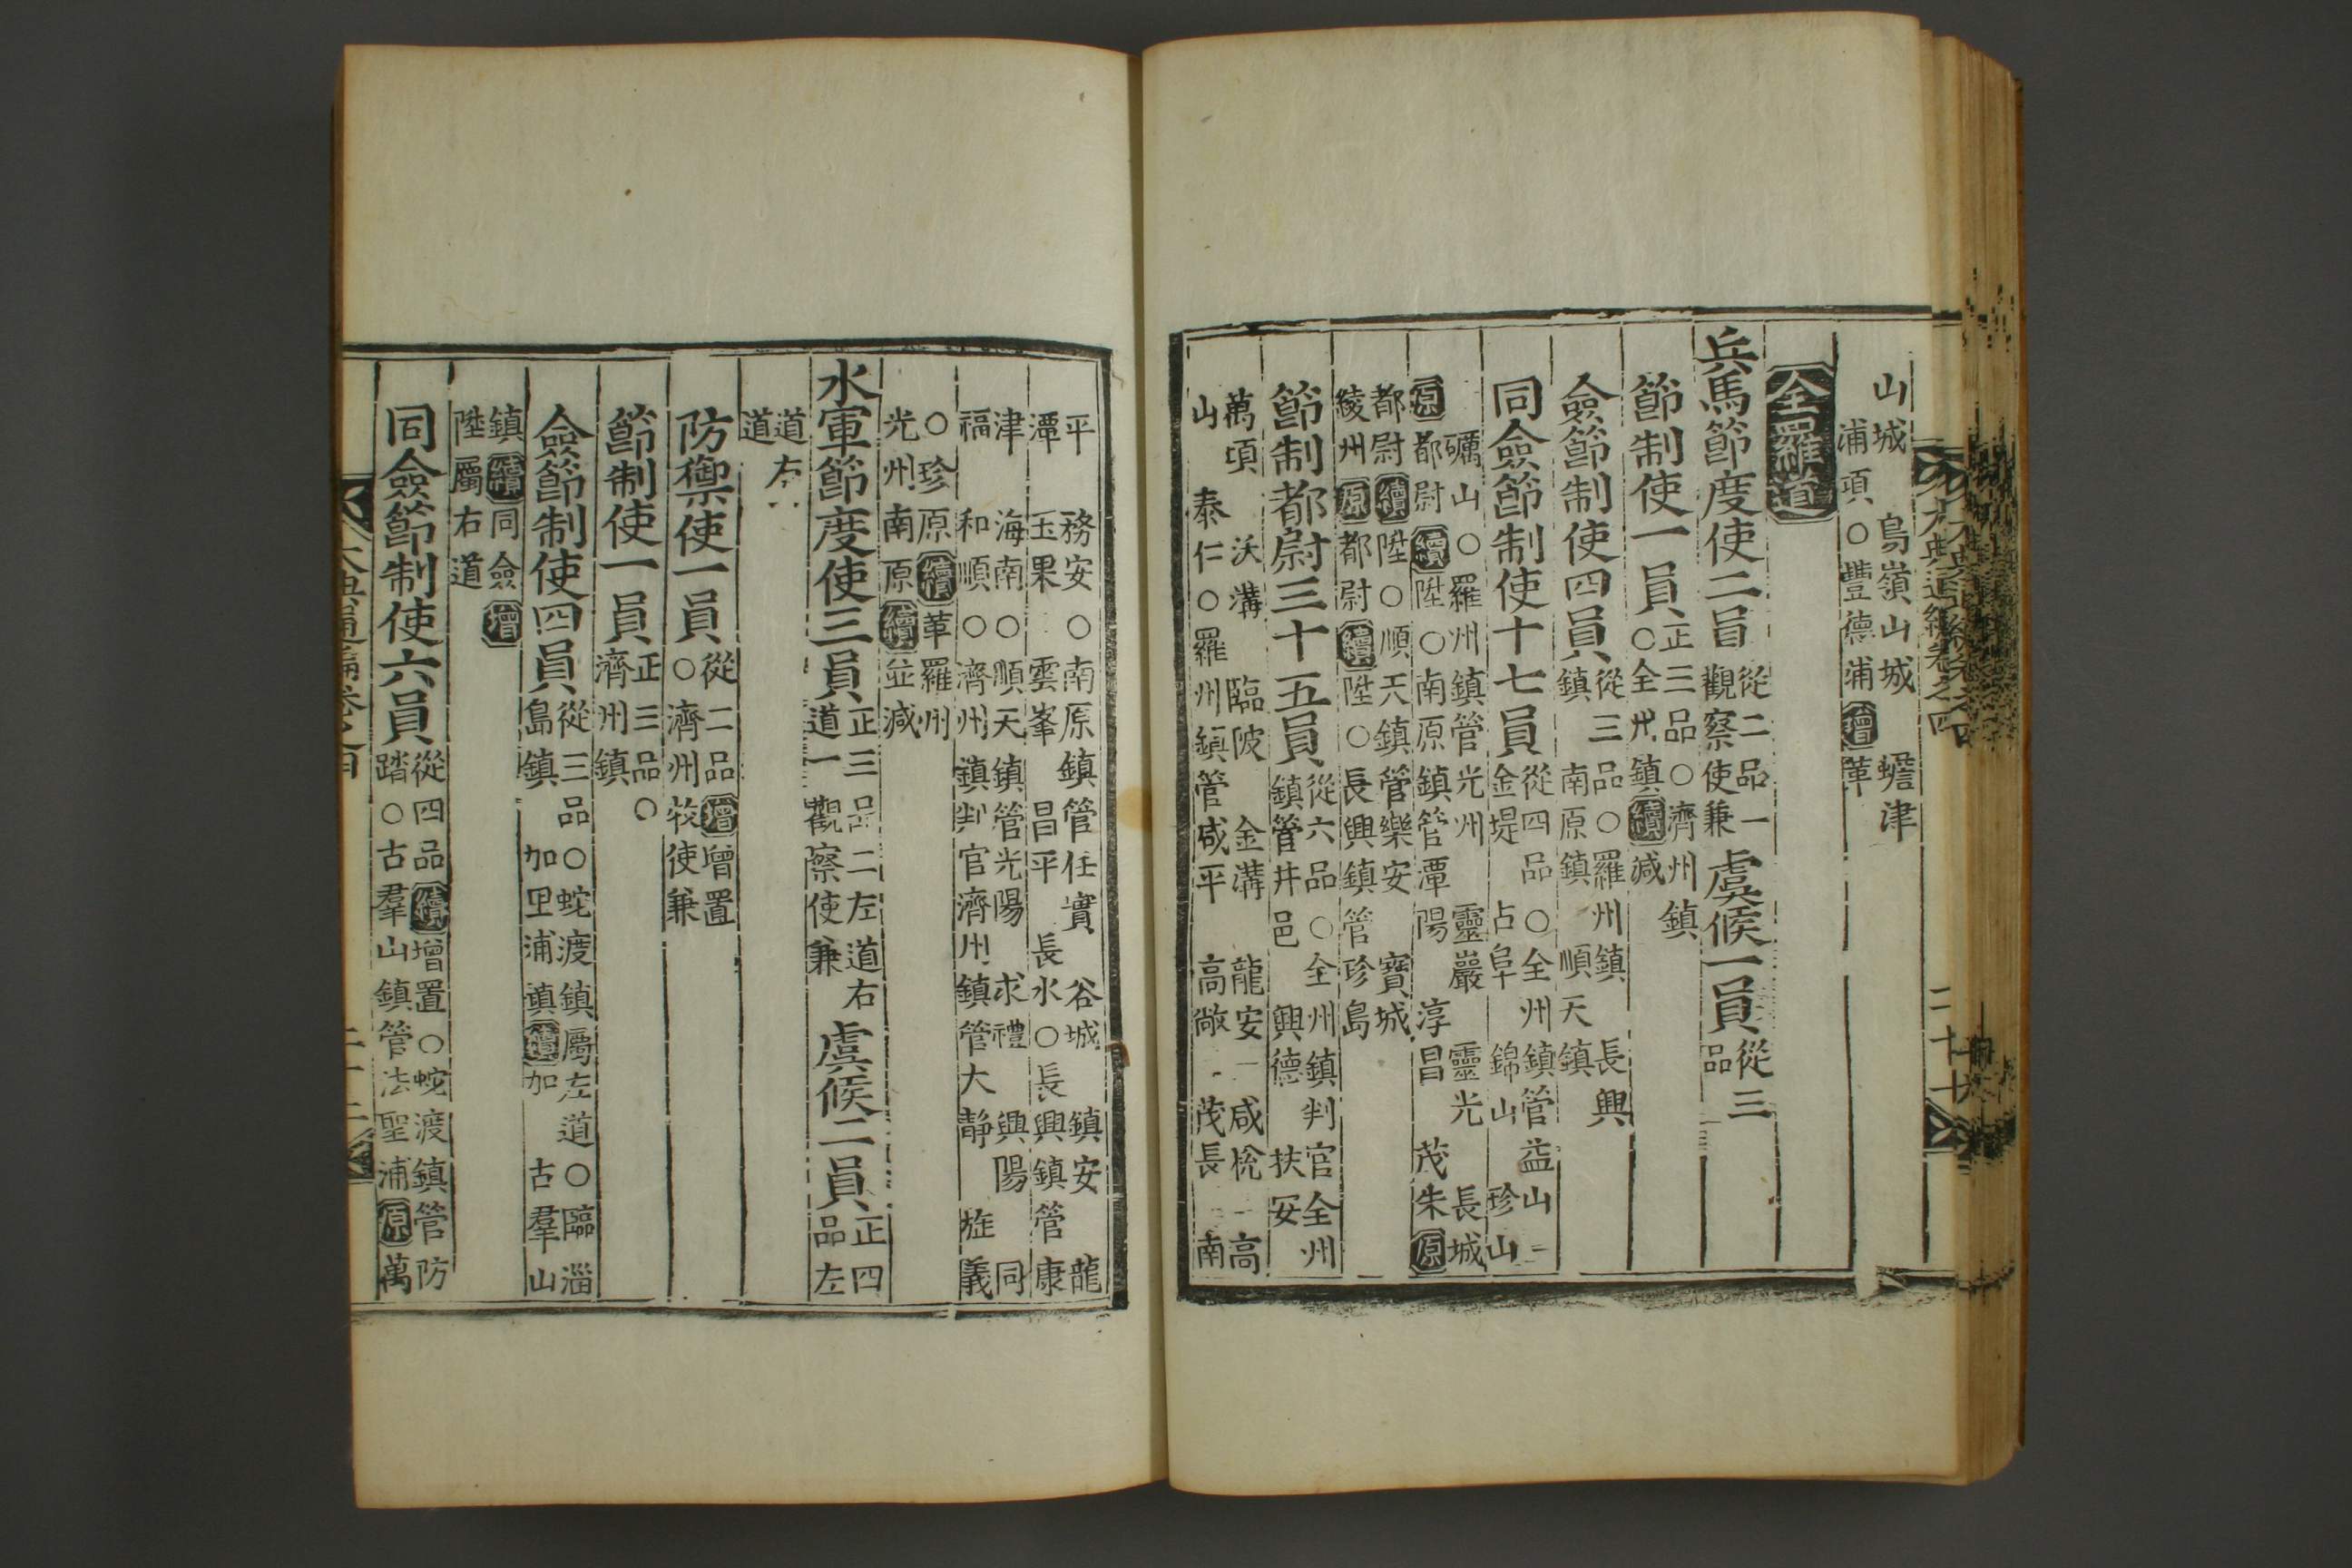 山城 鳥嶺山城 蟾津
浦項○豐德浦增革
全羅道
兵馬節度使二員從二品一
觀察使兼虞候一員從三
品
節制使一員正三品○濟州鎮
○全州鎮續減
僉節制使四員從三品○羅州鎮 長興
鎮 南原鎮 順天鎮
同僉節制使十七員從四品○全州鎮管益山
金堤 古阜 錦山 珍山
礪山○羅州鎮管光州 靈巖 靈光 長城
原都尉續陞○南原鎮管潭陽 淳昌 茂朱原
都尉續陞○順天鎮管樂安 寶城
綾州原都尉續陞○長興鎮管珍島
節制都尉三十五員從六品○全州鎮判官全州
鎮管井邑 興德 扶安
萬頃 沃溝 臨陂 金溝 龍安 咸悅 高
山 泰仁○羅州鎮管咸平 高敞 茂長 南
大典通編卷之四
二十七
平 務安○南原鎮管任實 谷城 鎮安 龍
潭 玉果 雲峯 昌平 長水○長興鎮管康
津 海南○順天鎮管光陽 求禮 興陽 同
福 和順○濟州鎮判官濟州鎮管大靜 旌義
○珍原續革羅州
光州南原續並減
水軍節度使三員正三品二左道右
道一觀察使兼虞候二員正四
品左
道右
道
防禦使一員從二品增增置
○濟州牧使兼
節制使一員正三品○
濟州鎮
僉節制使四員從三品○蛇渡鎮屬左道○臨淄
島鎮 加里浦鎮續加 古羣山
鎮續同僉增
陞屬右道
同僉節制使六員從四品續增置○蛇渡鎮管防
踏○古羣山鎮管法聖浦原萬
大典通編卷之四